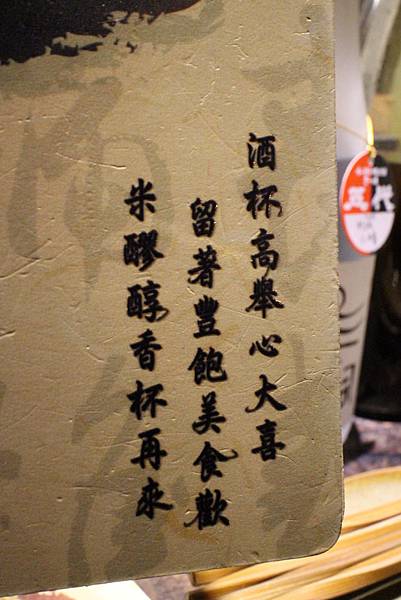 酒杯高舉心大喜
留著豐飽美食歡
米醪醇香杯再來